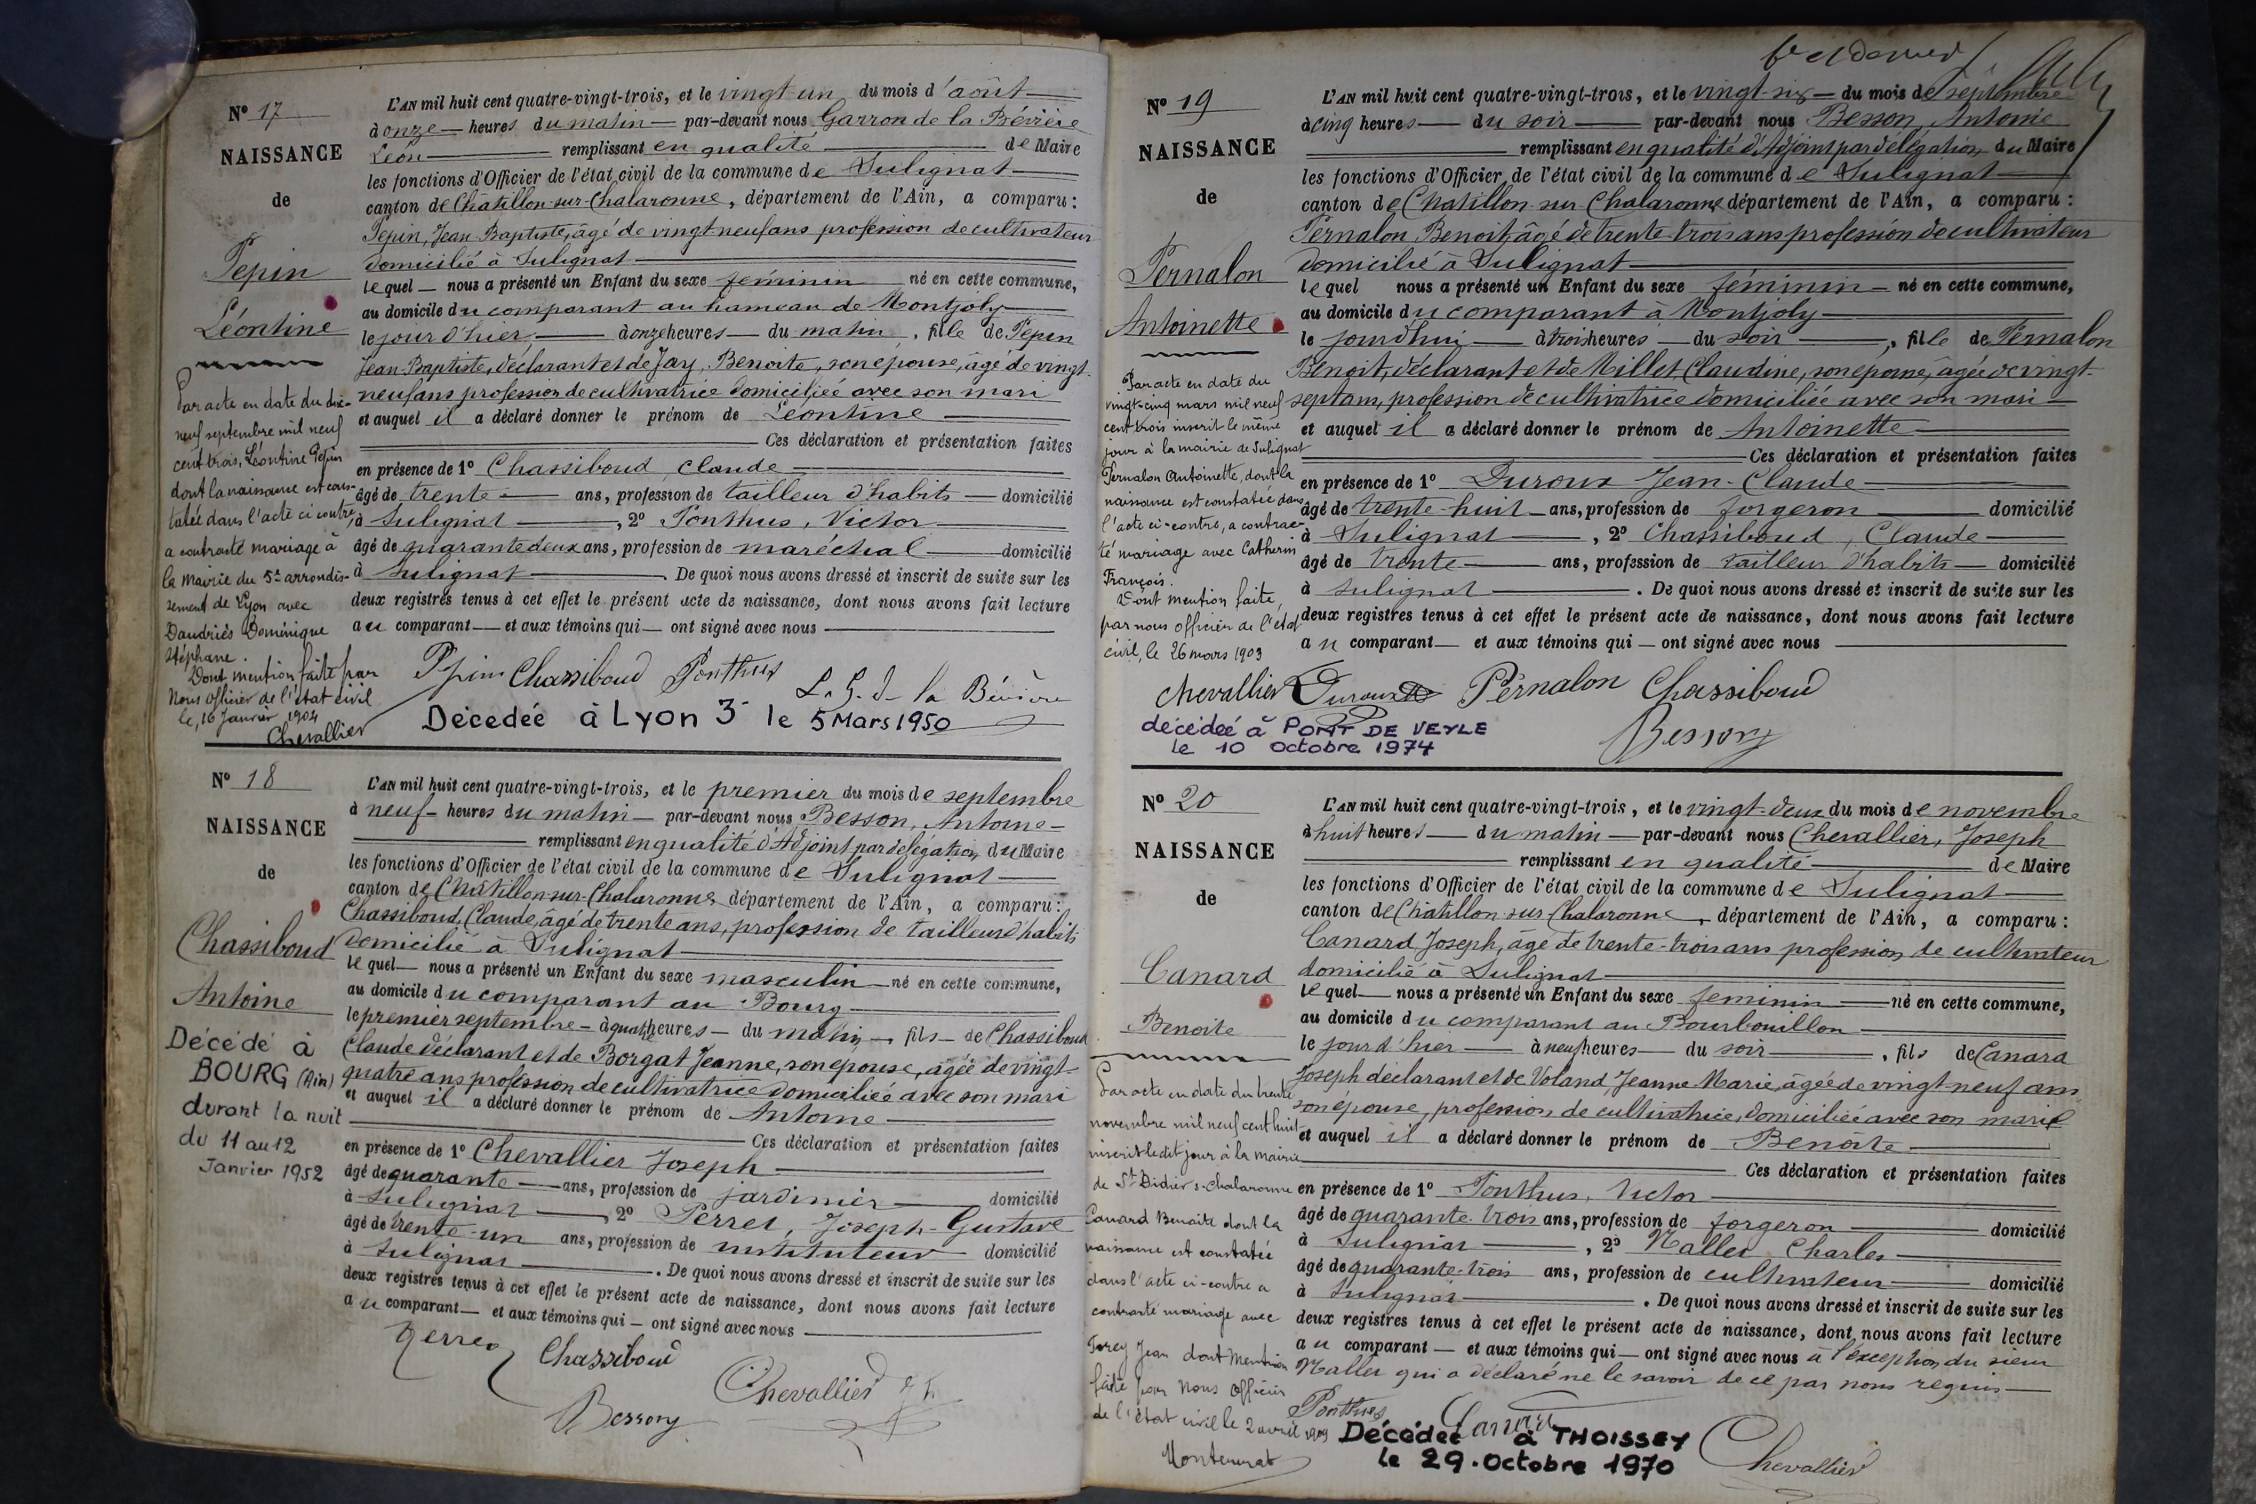 Nº 17
NAISSANCE
de
Pepin
Léontine
Par acte en date du dix-
neuf septembre mil neuf
cent trois, Léontine Pepin
dont la naissance est cons-
tatée dans l'acte ci contre,
a contracté mariage à
la mairie du 5e arrondis-
sement de Lyon avec
Daudriès Dominique
Stéphane.
Dont mention faite par
Nous officier de l'état civil
le, 16 Janvier 1904
Chevallier
L'AN mil huit cent quatre-vingt-trois, et le vingt un du mois d'août
à onze heures du matin par-devant nous Garron de la Bévière
Léon remplissant en qualité de Maire
les fonctions d'Officier de l'état civil de la commune de Sulignat
canton de Châtillon-sur-Chalaronne, département de l'Ain, a comparu :
Pepin, Jean Baptiste, âgé de vingt neuf ans profession de cultivateur
domicilié à Sulignat
lequel nous a présenté un Enfant du sexe féminin né en cette commune,
au domicile du comparant au hameau de Montjoly
le jour d'hier, à onze heures du matin, fille de Pepin
Jean-Baptiste, déclarant et de Jay, Benoite, son épouse, âgé de vingt-
neuf ans profession de cultivatrice domiciliée avec son mari
et auquel il a déclaré donner le prénom de Léontine
Ces déclaration et présentation faites
en présence de 1º Chassiboud, Claude
âgé de trente ans, profession de tailleur d'habits domicilié
à Sulignat, 2º Ponthus, Victor
âgé de quarante deux ans, profession de maréchal domicilié
à Sulignat. De quoi nous avons dressé et inscrit de suite sur les
deux registres tenus à cet effet le présent acte de naissance, dont nous avons fait lecture
au comparant et aux témoins qui ont signé avec nous
Pepin Chassiboud Ponthus L. G. d. la Bévière
Décedeé à Lyon 3e le 5 Mars 1950
Nº 18
NAISSANCE
de
Chassiboud
Antoine
Décédé à
BOURG (Ain)
durant la nuit
du 11 au 12
Janvier 1952
L'AN mil huit cent quatre-vingt-trois, et le premier du mois de septembre
à neuf heures du matin par-devant nous Besson, Antoine
remplissant en qualité d'Adjoint par délégation du Maire
les fonctions d'Officier de l'état civil de la commune de Sulignat
canton de Châtillon-sur-Chalaronne département de l'Ain, a comparu :
Chassiboud, Claude, âgé de trente ans, profession de tailleur d'habits
domicilié à Sulignat
lequel nous a présenté un Enfant du sexe masculin né en cette commune,
au domicile du comparant au Bourg
le premier septembre à quatre heures du matin, fils de Chassiboud
Claude déclarant et de Borgat Jeanne, son épouse, agée de vingt-
quatre ans profession de cultivatrice domiciliée avec son mari
et auquel il a déclaré donner le prénom de Antoine
Ces déclaration et présentation faites
en présence de 1º Chevallier Joseph
âgé de quarante ans, profession de jardinier domicilié
à Sulignat, 2º Perret, Joseph-Gustave
âgé de trente-un ans, profession de instituteur domicilié
à Sulignat. De quoi nous avons dressé et inscrit de suite sur les
deux registres tenus à cet effet le présent acte de naissance, dont nous avons fait lecture
au comparant et aux témoins qui ont signé avec nous
Perret Chassiboud Chevallier
Besson
6e et dernier
Nº 19
NAISSANCE
de
Pernalon
Antoinette
Par acte en date du
vingt-cinq mars mil neuf
cent trois inscrit le même
jour à la mairie de Sulignat
Pernalon Antoinette, dont la
naissance est constatée dans
l'acte ci-contre, a contrac-
té mariage avec Catherin
François.
Dont mention faite,
par nous officier de l'état
civil, le 26 mars 1903
Chevallier
L'AN mil huit cent quatre-vingt-trois, et le vingt-six du mois de septembre
à cinq heures du soir par-devant nous Besson, Antoine
remplissant en qualité d'Adjoint par délégation du Maire
les fonctions d'Officier de l'état civil de la commune de Sulignat
canton de Châtillon-sur-Chalaronne département de l'Ain, a comparu :
Pernalon, Benoit, âgé de trente-trois ans profession de cultivateur
domicilié à Sulignat
lequel nous a présenté un Enfant du sexe féminin né en cette commune,
au domicile du comparant à Montjoly
le jourd'hui à trois heures du soir, fille de Pernalon
Benoit, déclarant et de Millet, Claudine, son épouse, âgée de vingt-
sept ans, profession de cultivatrice domiciliée avec son mari
et auquel il a déclaré donner le prénom de Antoinette
Ces déclaration et présentation faites
en présence de 1º Duroux Jean-Claude
âgé de trente-huit ans, profession de forgeron domicilié
à Sulignat, 2º Chassiboud, Claude
âgé de trente ans, profession de tailleur d'habits domicilié
à Sulignat. De quoi nous avons dressé et inscrit de suite sur les
deux registres tenus à cet effet le présent acte de naissance, dont nous avons fait lecture
au comparant et aux témoins qui ont signé avec nous
Duroux Pernalon Chassiboud
Besson
décédeé à PONT DE VEYLE
le 10 octobre 1974
Nº 20
NAISSANCE
de
Canard
Benoite
Par acte en date du trente
novembre mil neuf cent huit
inscrit le dit jour à la mairie
de St Didier s-Chalaronne
Canard Benoite dont la
naissance est constatée
dans l'acte ci-contre a
contracté mariage avec
Jean dont Mention
faite pour Nous Officier
de l'état civil le 2 avril 1909
Monternat
L'AN mil huit cent quatre-vingt-trois, et le vingt-deux du mois de novembre
à huit heures du matin par-devant nous Chevallier, Joseph
remplissant en qualité de Maire
les fonctions d'Officier de l'état civil de la commune de Sulignat
canton de Châtillon-sur-Chalaronne, département de l'Ain, a comparu :
Canard Joseph, âgé de trente-trois ans profession de cultivateur
domicilié à Sulignat
lequel nous a présenté un Enfant du sexe féminin né en cette commune,
au domicile du comparant au Bourbouillon
le jour d'hier à neuf heures du soir, fils de Canard
Joseph déclarant et de Voland, Jeanne Marie, âgée de vingt-neuf ans
son épouse, profession de cultivatrice, domiciliée avec son mari
et auquel il a déclaré donner le prénom de Benoite
Ces déclaration et présentation faites
en présence de 1º Ponthus, Victor
âgé de quarante-trois ans, profession de forgeron domicilié
à Sulignat, 2º Mallet Charles
âgé de quarante-trois ans, profession de cultivateur domicilié
à Sulignat. De quoi nous avons dressé et inscrit de suite sur les
deux registres tenus à cet effet le présent acte de naissance, dont nous avons fait lecture
au comparant et aux témoins qui ont signé avec nous à l'exception du sieur
Mallet qui a déclaré ne le savoir de ce par nous requis
Ponthus Canard Chevallier
Décédée à THOISSEY
le 29 . Octobre 1970